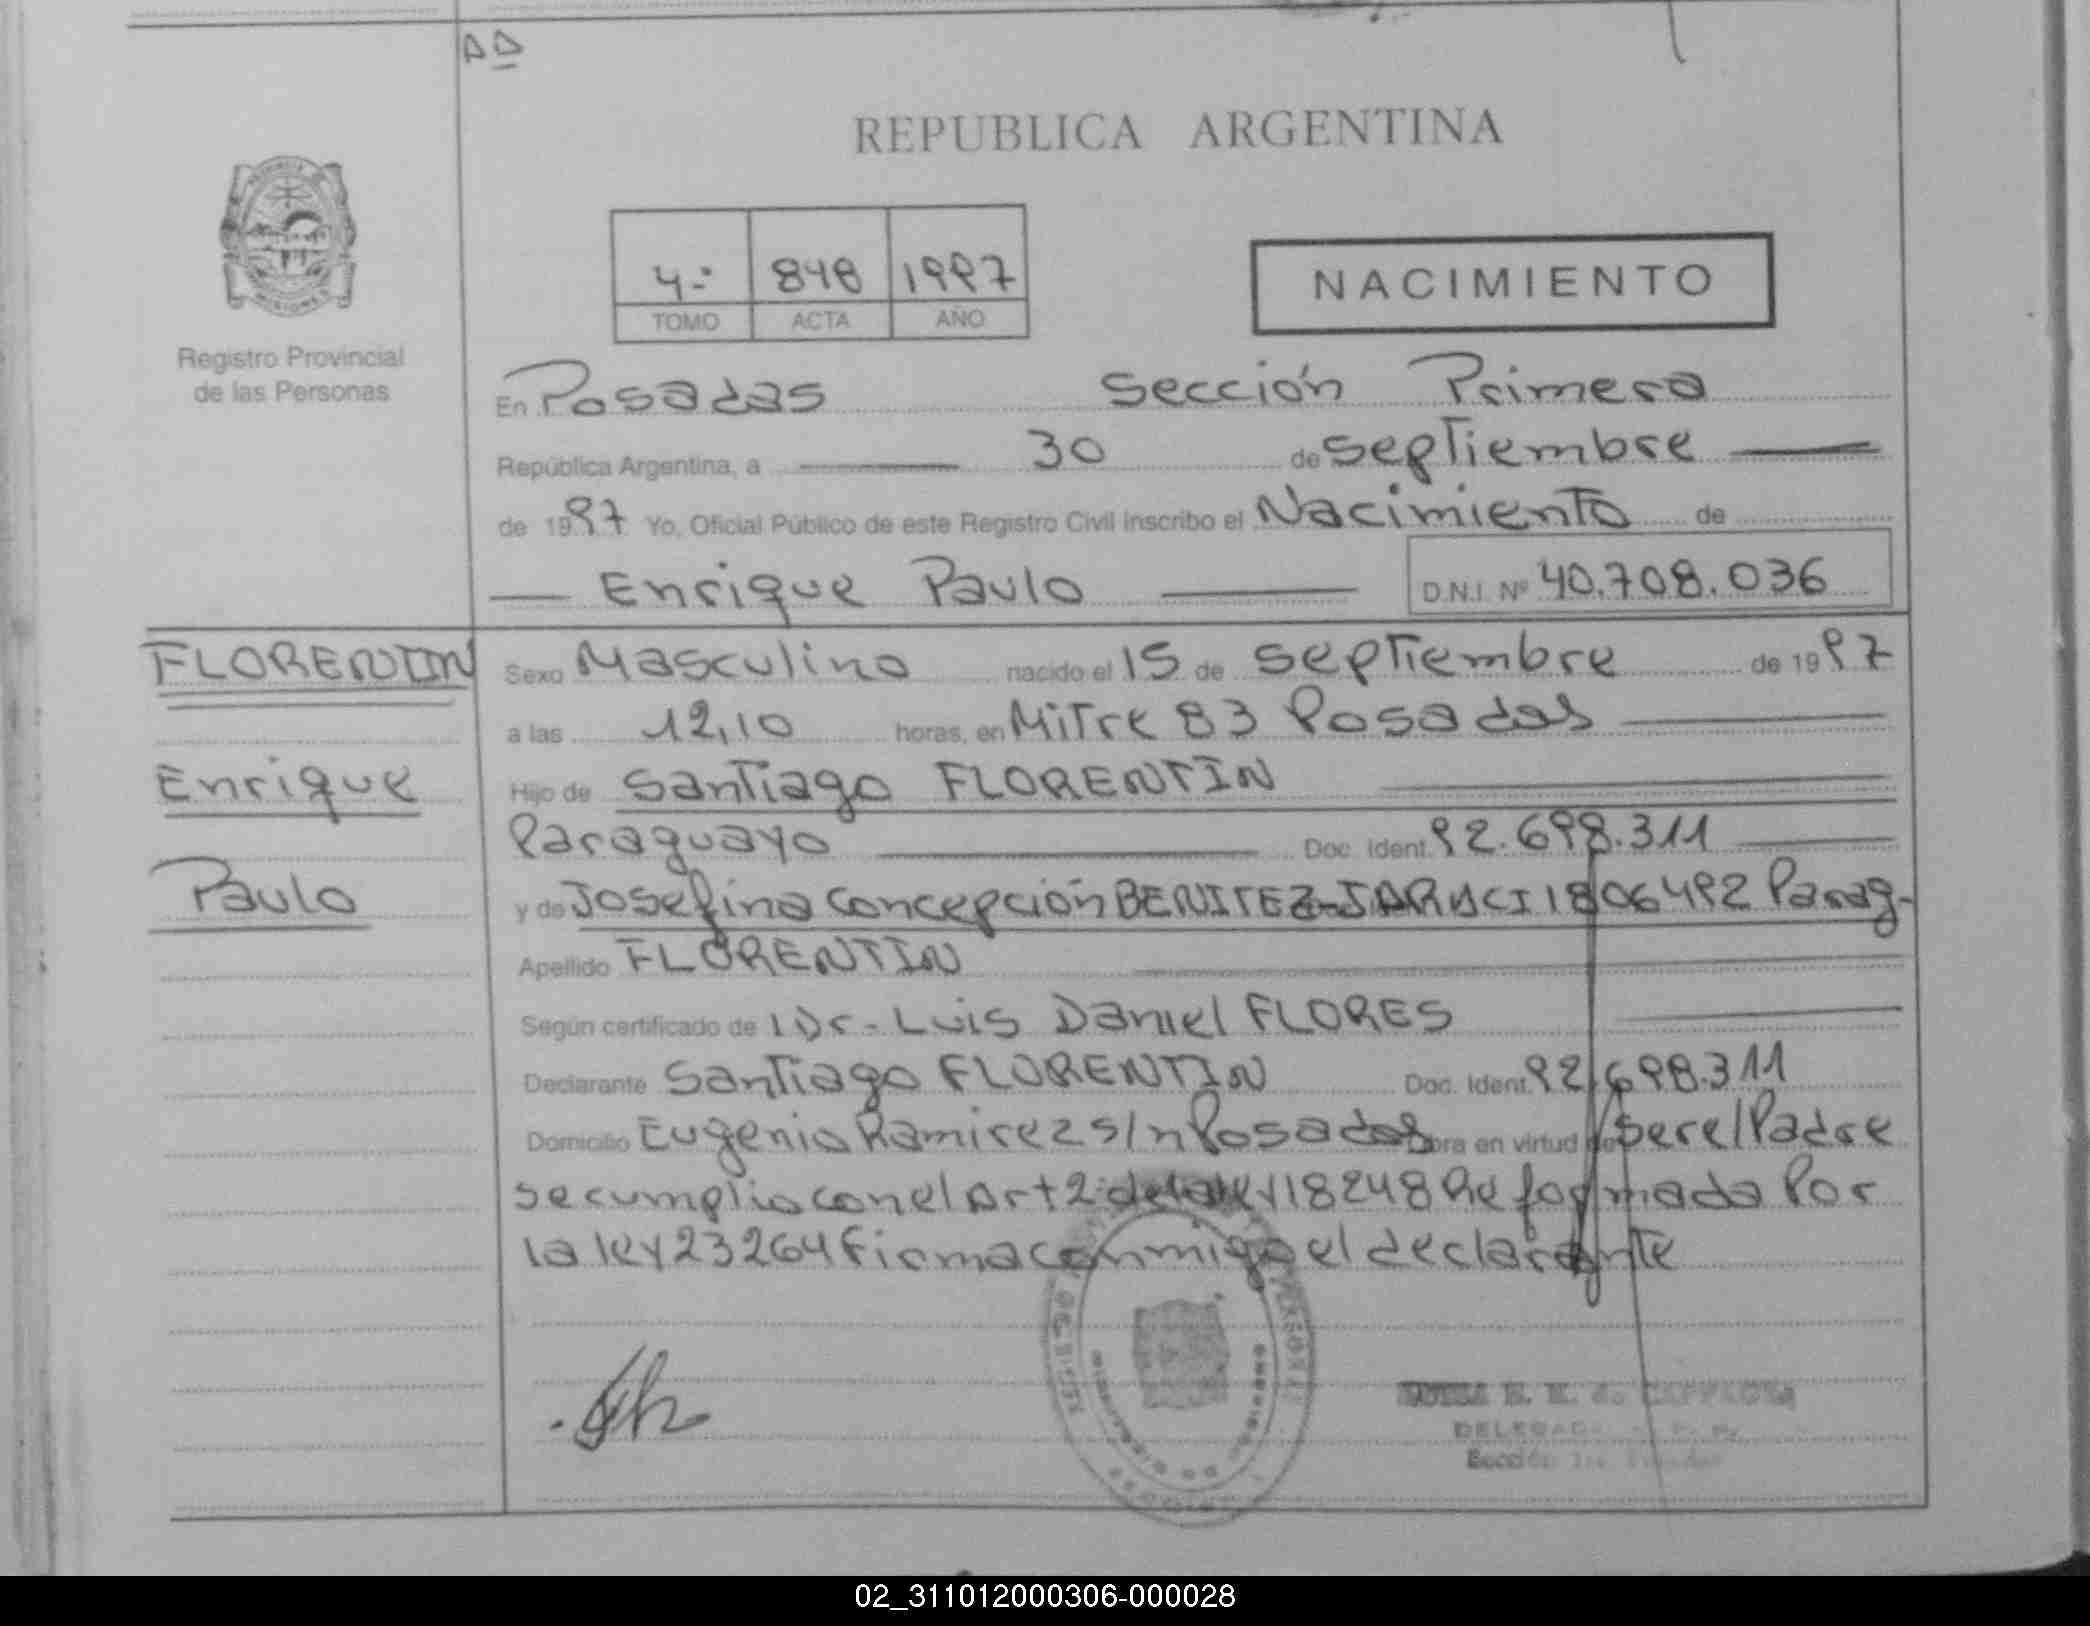 REPUBLICA ARGENTINA
4.: 848 1997
TOMO ACTA AÑO
NACIMIENTO
Registro Provincial
de las Personas
En Posadas Sección Primera
República Argentina, a 30 de septiembre
de 1997 Yo, Oficial Público de este Registro Civil inscribo el Nacimiento de
Enrique Paulo D.N.I. Nº 40.708.036
FLORENTIN
Enrique
Paulo
Sexo Masculino nacido el 15 de septiembre de 1997
a las 12,10 horas, en Mitre 83 Posadas
Hijo de Santiago FLORENTIN
Paraguayo Doc. Ident. 92.698.311
y de Josefina Concepción BENITEZ CI 1806492 Parag-
Apellido FLORENTIN
Según certificado de Dr- Luis Daniel FLORES
Declarante Santiago FLORENTIN Doc. Ident. 92.698.311
Domicilio Eugenio Ramirez s/n Posadas obra en virtud de ser el Padre
se cumplio con el Art 2 de la ley 18248 Reformada Por
la ley 23264 firma conmigo el declarante
02_311012000306-000028